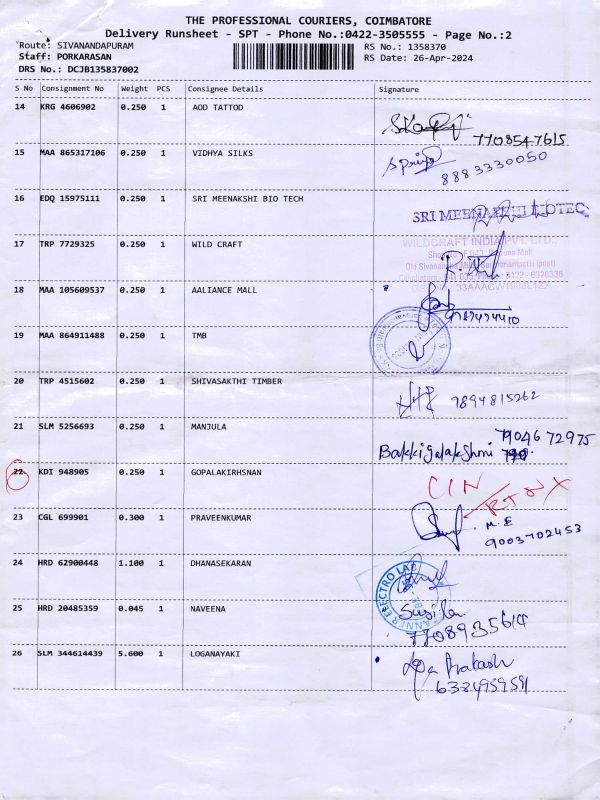 THE PROFESSIONAL COURIERS, COIMBATORE
Delivery Runsheet - SPT - Phone No.:0422-3505555 - Page No.:2
Route: SIVANANDAPURAM RS No.: 1358370
Staff: PORKARASAN RS Date: 26-Apr-2024
DRS No.: DCJB135837002
S No Consignment No Weight PCS Consignee Details Signature
14 KRG 4606902 0.250 1 AOD TATTOD
7708547615
15 MAA 865317106 0.250 1 VIDHYA SILKS
8883330050
16 EDQ 15975111 0.250 1 SRI MEENAKSHI BIO TECH
SRI MEENAKSHI BIOTEC
17 TRP 7729325 0.250 1 WILD CRAFT
WILDCRAFT INDIA PVT. LTD.,
18 MAA 105609537 0.250 1 AALIANCE MALL
19 MAA 864911488 0.250 1 TMB
20 TRP 4515602 0.250 1 SHIVASAKTHI TIMBER
9894815262
21 SLM 5256693 0.250 1 MANJULA
7904672975
Bakkigalakshmi
22 KDI 948905 0.250 1 GOPALAKIRHSNAN
CIN
23 CGL 699901 0.300 1 PRAVEENKUMAR
M.E
9003702453
24 HRD 62900448 1.100 1 DHANASEKARAN
25 HRD 20485359 0.045 1 NAVEENA
Susila
26 SLM 344614439 5.600 1 LOGANAYAKI
Prakash